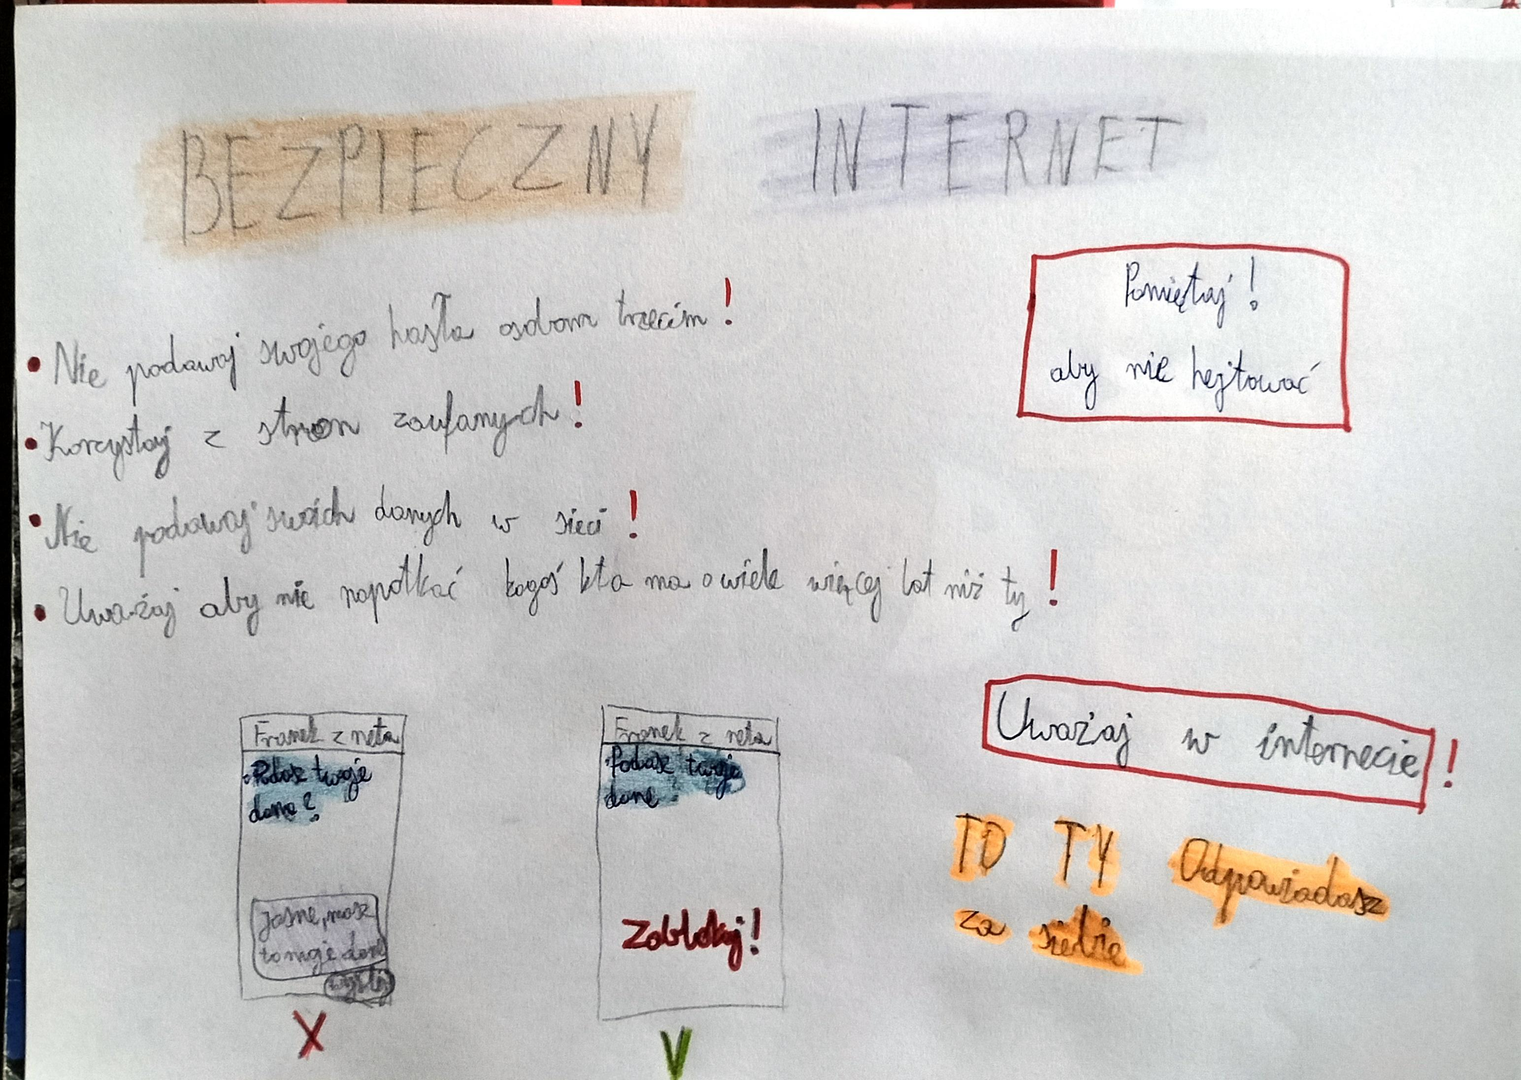 BEZPIECZNY INTERNET
• Nie podawaj swojego hasła osobom trzecim!
• Korzystaj z stron zaufanych!
• Nie podawaj swoich danych w sieci!
• Uważaj aby nie napotkać kogoś kto ma o wiele więcej lat niż ty!
Pamiętaj!
aby nie hejtować
Uważaj w internecie!
TO TY Odpowiadasz
za siebie
Franek z neta
Podasz twoje
dane?
Jasne, masz
to moje dane
wyślij
X
Franek z neta
Podasz twoje
dane?
Zablokuj!
V